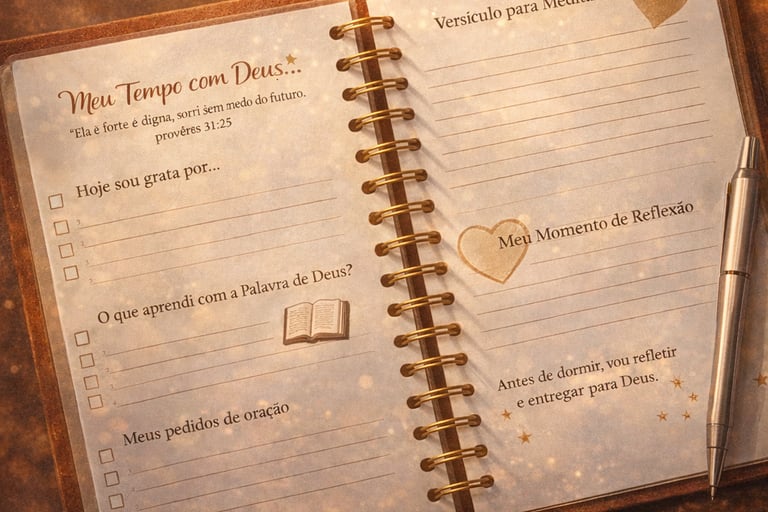 Meu Tempo com Deus...
"Ela é forte e digna, sorri sem medo do futuro.
provérbs 31:25
Hoje sou grata por...
O que aprendi com a Palavra de Deus?
Meus pedidos de oração
Versículo para Medita
Meu Momento de Reflexão
Antes de dormir, vou refletir
e entregar para Deus.